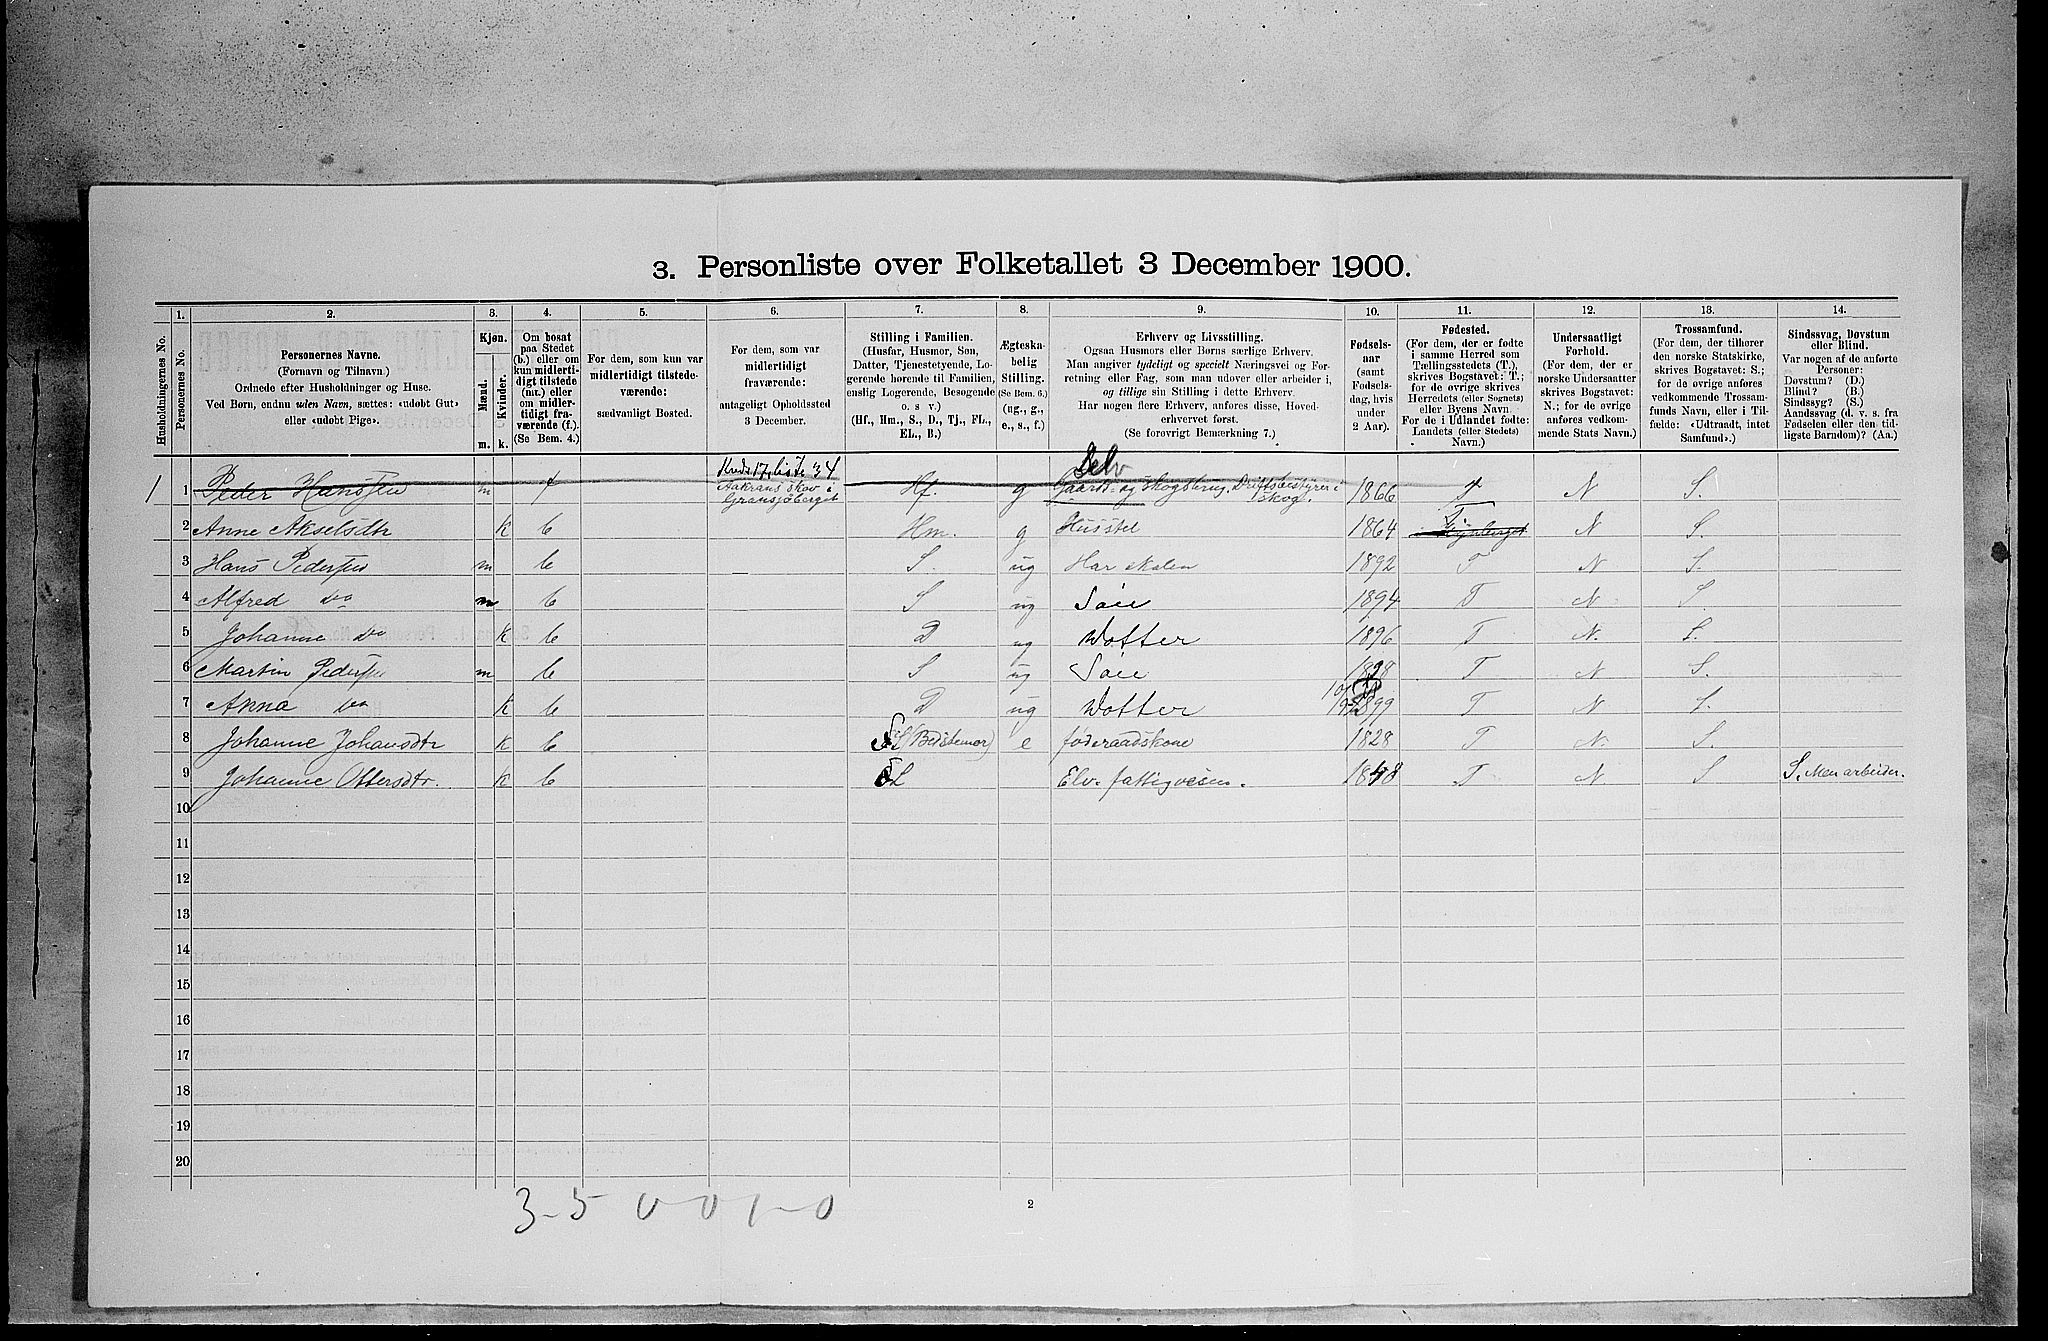 3. Personliste over Folketallet 3 December 1900.
1. 2. 3. 4. 5. 6. 7. 8. 9. 10. 11. 12. 13. 14.
Husholdningernes No.
Personernes No.
Personernes Navne.
(Fornavn og Tilnavn.)
Ordnede efter Husholdninger og Huse.
Ved Børn, endnu uden Navn, sættes: «udobt Gut»
eller «udobt Pige».
Kjøn.
Mænd.
Kvinder.
m. k.
Om bosat
paa Stedet
(b.) eller om
kun midlerti-
digt tilstede
(mt.) eller
om midler-
tidigt fra-
værende (f.).
(Se Bem. 4.)
For dem, som kun var
midlertidigt tilstede-
værende:
sædvanligt Bosted.
For dem, som var
midlertidigt
fraværende:
antageligt Opholdssted
3 December.
Stilling i Familien.
(Husfar, Husmor, Søn,
Datter, Tjenestetyende, Lo-
gerende hørende til Familien,
enslig Logerende, Besøgende
o. s v.)
(Hf., Hm., S., D., Tj., FL.,
EL., B.)
Ægteska-
belig
Stilling.
(Se Bem. 6.)
(ug., g.,
e., s., f.)
Erhverv og Livsstilling.
Ogsaa Husmors eller Børns særlige Erhverv.
Man angiver tydeligt og specielt Næringsvei og For-
retning eller Fag, som man udover eller arbeider i,
og tillige sin Stilling i dette Erhverv.
Har nogen flere Erhverv, anføres disse, Hoved-
erhvervet først.
(Se forøvrigt Bemærkning 7.)
Fødsels-
aar
(samt
Fødsels-
dag, hvis
under
2 Aar).
Fødested.
(For dem, der er fødte
i samme Herred som
Tællingsstedets (T.),
skrives Bogstavet: T.;
for de øvrige skrives
Herredets (eller Sognets)
eller Byens Navn.
For de i Udlandet fødte:
Landets (eller Stedets)
Navn.)
Undersaatligt
Forhold.
(For dem, der er
norske Undersaatter
skrives Bogstavet:
N.; for de øvrige
anføres vedkom-
mende Stats Navn.)
Trossamfund.
(For dem, der tilhører
den norske Statskirke,
skrives Bogstavet: S.;
for de øvrige anføres
vedkommende Trossam-
funds Navn, eller i Til-
fælde: «Udtraadt, intet
Samfund».)
Sindssvag, Døvstum
eller Blind.
Var nogen af de anførte
Personer:
Døvstum? (D.)
Blind? (B.)
Sindssyg? (S.)
Aandssvag (d. v. s. fra
Fødselen eller den tid-
ligste Barndom)? (Aa.)
Kreds 17, liste 34
Selv
1 1 Peder Hanssen m f Aakrans skov i Gransjøberget Hf. g Gaards- og Skogbrug. Driftsbestyrer i skog. 1866 T N S.
2 Anne Akselsdtr k b Hm. g Husstel 1864 T N S.
3 Hans Pedersen m b S. ug Har skolen 1892 T N S.
4 Alfred do m b S ug Søn 1894 T N S.
5 Johanne do k b D ug Dotter 1896 T N. S.
6 Martin Pedersen m b S ug Søn T N S.
7 Anna do k b D ug Dotter 1899 T N S.
8 Johanne Johansdtr k b (Bedstemor) e føderaadskone 1828 T N. S.
9 Johanne Ottersdtr. k b EL Elv. fattigvæsen. T N S S. Men arbeider.
10
11
12
13
14
15
16
17
18
19
20
3-5 0 0 1-0
2